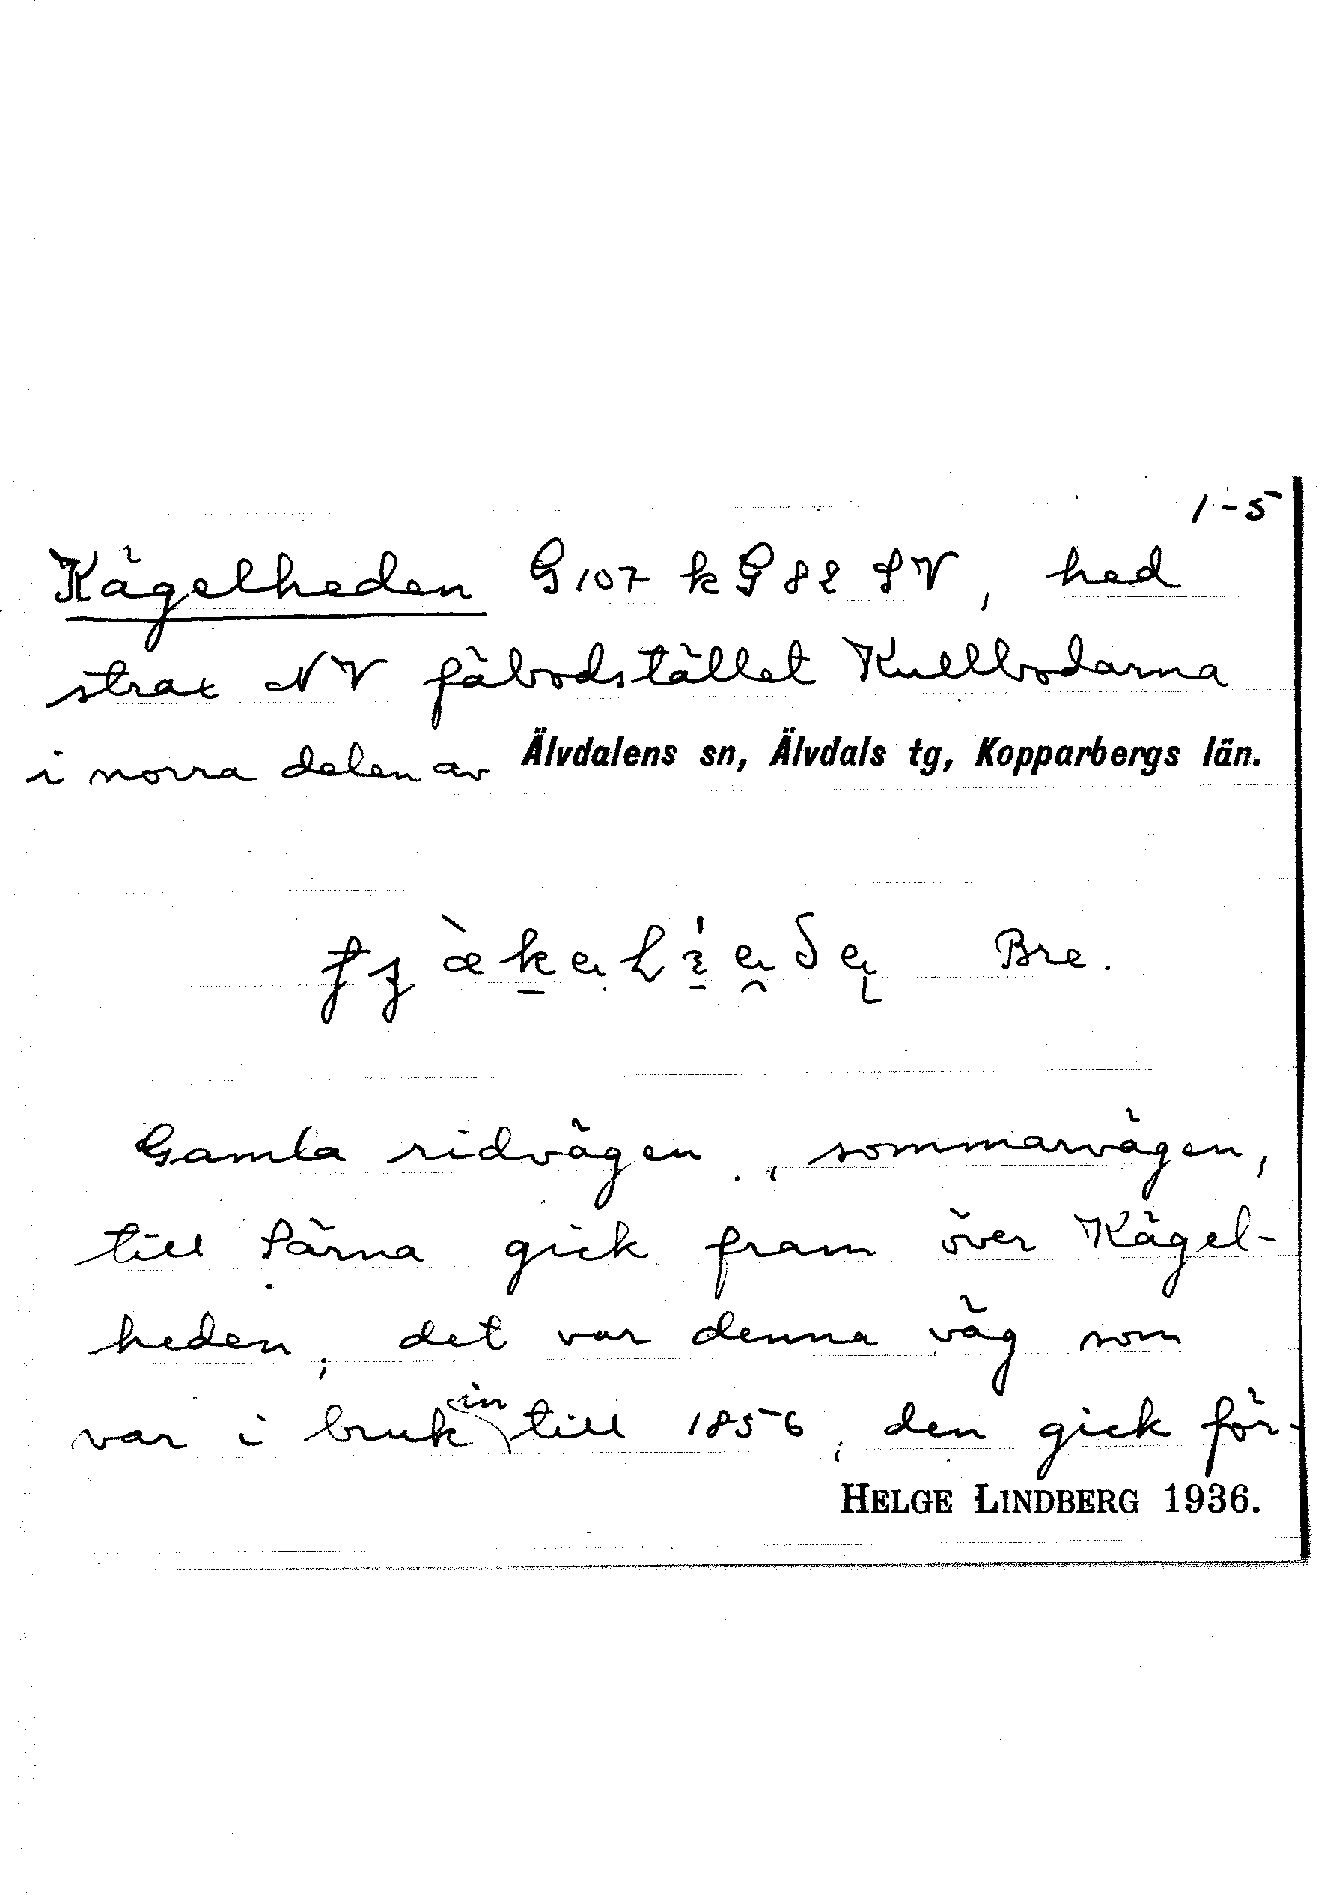 1-5
Kägelheden G107 k G82 SV, hed
strax NV fäbodstället Kullbodarna
i norra delen av Älvdalens sn, Älvdals tg, Kopparbergs län.
Bre.
Gamla ridvägen, sommarvägen,
till Särna gick fram över Kägel-
heden, det var denna väg som
var i bruk in till 1856, den gick för-
HELGE LINDBERG 1936.